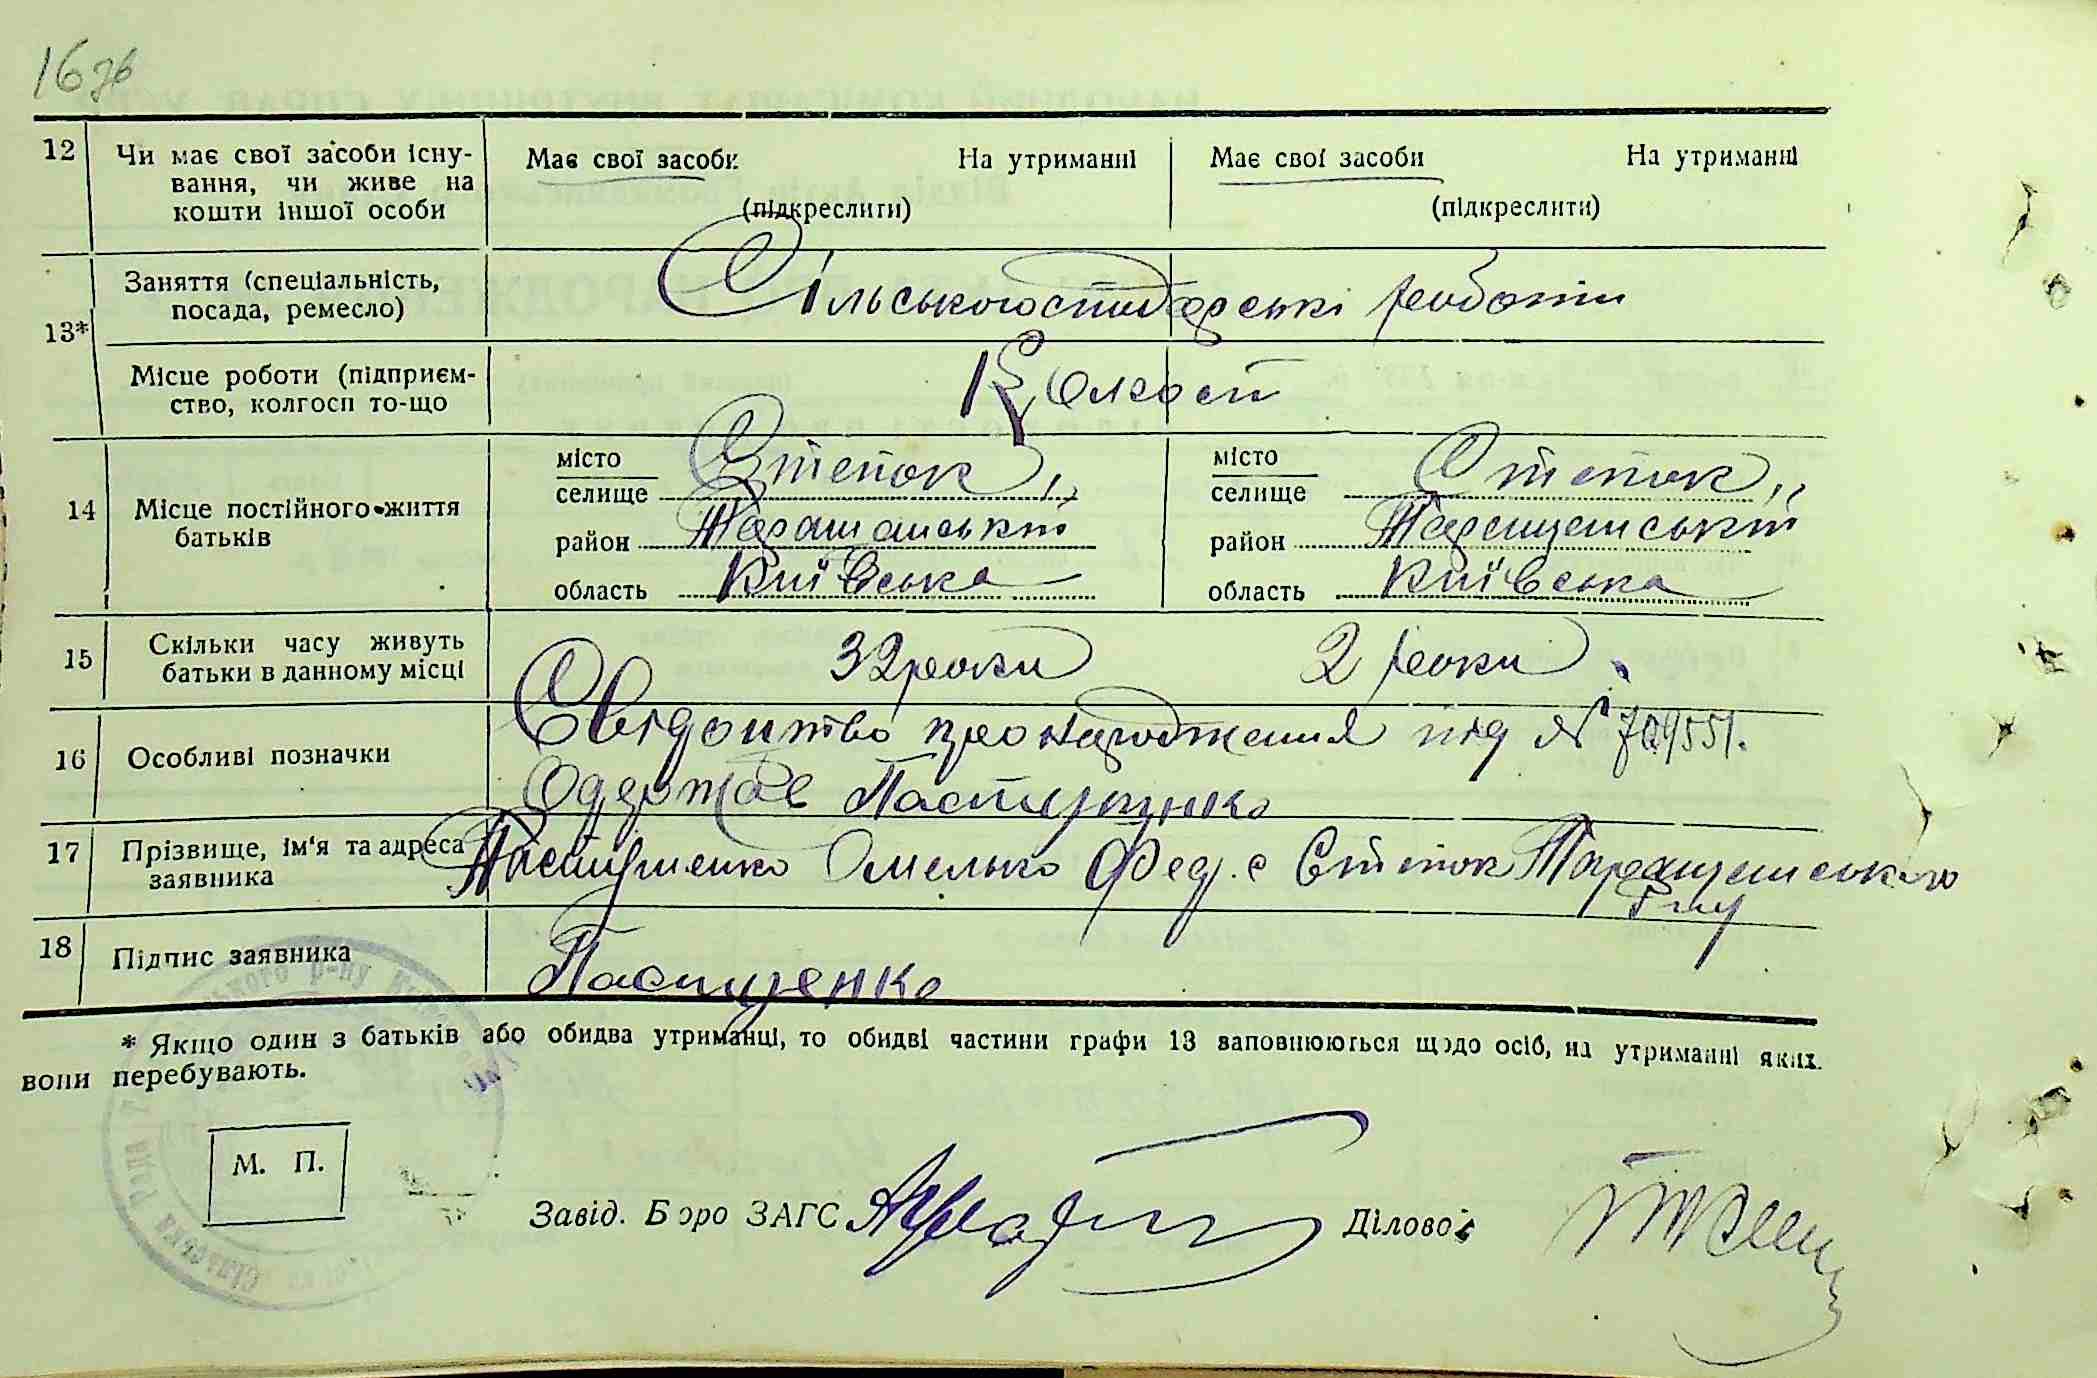 16 зв
12 Чи має свої засоби існу- Має свої засоби На утриманні Має свої засоби На утриманні
вання, чи живе на
кошти іншої особи (підкреслити) (підкреслити)
13* Заняття (спеціальність, Сільськогосподарські роботи
посада, ремесло)
Місце роботи (підприєм- Колгосп
ство, колгосп то-що
14 Місце постійного життя
батьків
місто Степок місто Степок
селище селище
район Таращанський район Таращанський
область Київська область Київська
15 Скільки часу живуть 32 роки 2 роки
батьки в данному місці
16 Особливі позначки Свідоцтво про народження під №
Одержав Пастушенко
17 Прізвище, ім'я та адреса Пастушенко Омелько Фед. с Степок Таращанського
заявника р-ну
18 Підпис заявника Пастушенко
* Якщо один з батьків або обидва утриманці, то обидві частини графи 13 заповнюються щодо осіб, на утриманні яких
вони перебувають.
М. П.
Завід. Бюро ЗАГС Діловод